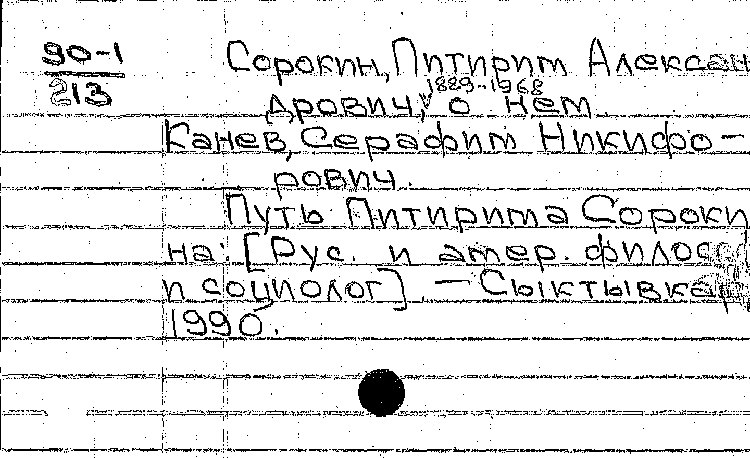 90-1
213
Сорокин, Питирим Алексан
дрович, 1889-1968 о нем
Канев, Серафим Никифо-
рович.
Путь Питирима Сороки
на: [Рус. и амер. филосо
и социолог]. — Сыктывкар
1990.